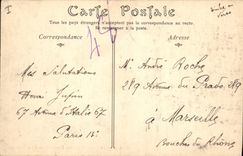 Carte Postale
Tous les pays étrangers n'acceptent pas la correspondance au recto.
Se renseigner à la poste.
Correspondance
Adresse
Mr André Roche
289 Avenue du Prado 289
à Marseille
Bouches du Rhône
Mes Salutations
67 Avenue d'Italie 67
Paris 13e